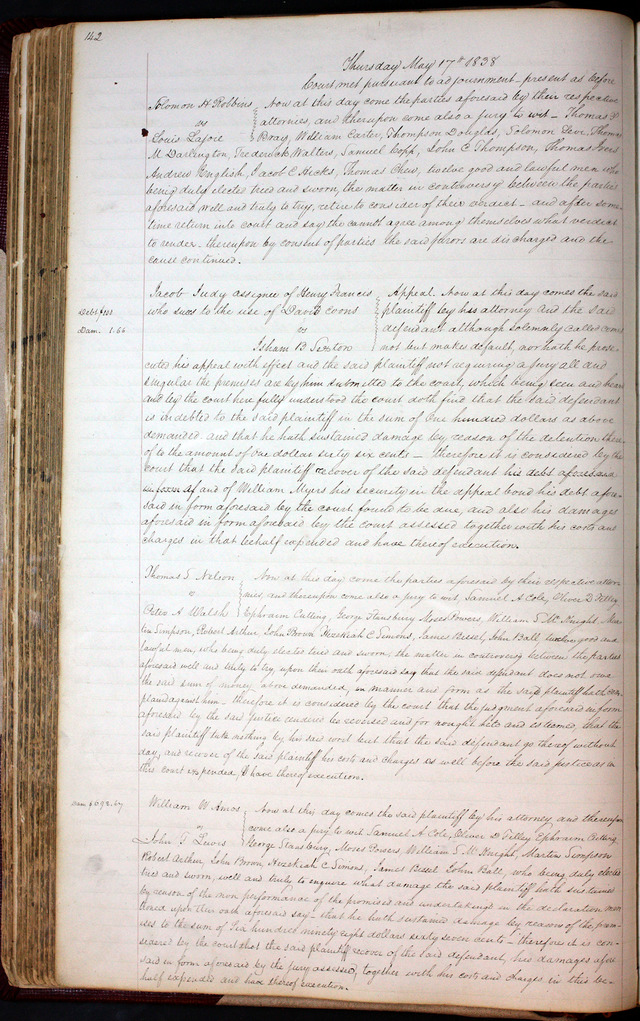 142
Thursday May 17th 1838
Court met pursuant to adjournment present as before
Solomon H Robbins Now at this day come the parties aforesaid by their respective
vs attornies, and thereupon come also a jury to wit Thomas
Louis Lajoie Bray, William Carter, Thompson Douglas, Solomon Thomas
M Darlington, Frederick Walters, Samuel Copp, John C Thompson, Thomas
Andrew English, Jacob C Hicks, Thomas twelve good and lawful men who
being duly elected tried and sworn, the matter in controversy between the parties
aforesaid well and truly to try, retire to consider of their verdict - and after some
time return into court and say they cannot agree among themselves what verdict
to render - thereupon by consent of parties the said jurors are discharged and the
cause continued.
Jacob Judy assignee of Henry Francis Appeal. Now at this day comes the said
Debt $100 who sues to the use of David Coons plaintiff by his attorney and the said
Dam. 1.66 vs defendant although solemnly called comes
Isham B Sexton not but makes default, nor hath he prose-
cuted his appeal with effect and the said plaintiff not requiring a jury all and
singular the premises are by him submitted to the court, which being seen and heard
and by the court here fully understood the court doth find that the said defendant
is indebted to the said plaintiff in the sum of One hundred dollars as above
demanded and that he hath sustained damage by reason of the detention there
of to the amount of one dollar sixty six cents - therefore it is considered by the
court that the said plaintiff recover of the said defendant his debt aforesaid
in form af and of William Myrs his security in the appeal bond his debt afore-
said in form aforesaid by the court found to be due, and also his damages
aforesaid in form aforesaid by the court assessed together with his costs and
charges in that behalf expended and have thereof execution.
Thomas S. Nelson Now at this day come the parties aforesaid by their respective attor-
vs nies, and thereupon come also a jury to wit, Samuel A Cole, Oliver D Filley
Peter A Walsh Ephraim Cutting, George Stansbury Moses Powers, William S McKnight, Mar-
tin Simpson, Robert Arthur, John Brown Hezekiah C Simons, James Bissel, John Ball, twelve good and
lawful men, who being duly elected tried and sworn, the matter in controversy between the parties
aforesaid well and truly to try, upon their oath aforesaid say that the said defendant does not owe
the said sum of money above demanded, in manner and form as the said plaintiff hath com-
plained against him - therefore it is considered by the court that the judgment aforesaid in form
aforesaid by the said justice rendered be reversed and for nought held and esteemed, that the
said plaintiff take nothing by his said writ but that the said defendant go thereof without
day, and recover of the said plaintiff his costs and charges as well before the said justice as in
this court expended, & have thereof execution.
Dam $698.67 William W Amos Now at this day comes the said plaintiff by his attorney, and thereupon
vs come also a jury to wit Samuel A Cole, Oliver D Filley Ephraim Cutting
John T Lewis George Stansbury, Moses Powers, William S McKnight, Martin Simpson
Robert Arthur, John Brown Hezekiah C Simons, James Bissel John Ball, who being duly elected
tried and sworn, well and truly to enquire what damage the said plaintiff hath sustained
by reason of the non performance of the promises and undertakings in the declaration men
tioned upon their oath aforesaid say - that he hath sustained damage by reason of the prom-
ises to the sum of Six hundred ninety eight dollars sixty seven cents - therefore it is con-
sidered by the court that the said plaintiff recover of the said defendant, his damages afore
said in form aforesaid by the jury assessed, together with his costs and charges in this be-
half expended and have thereof execution.